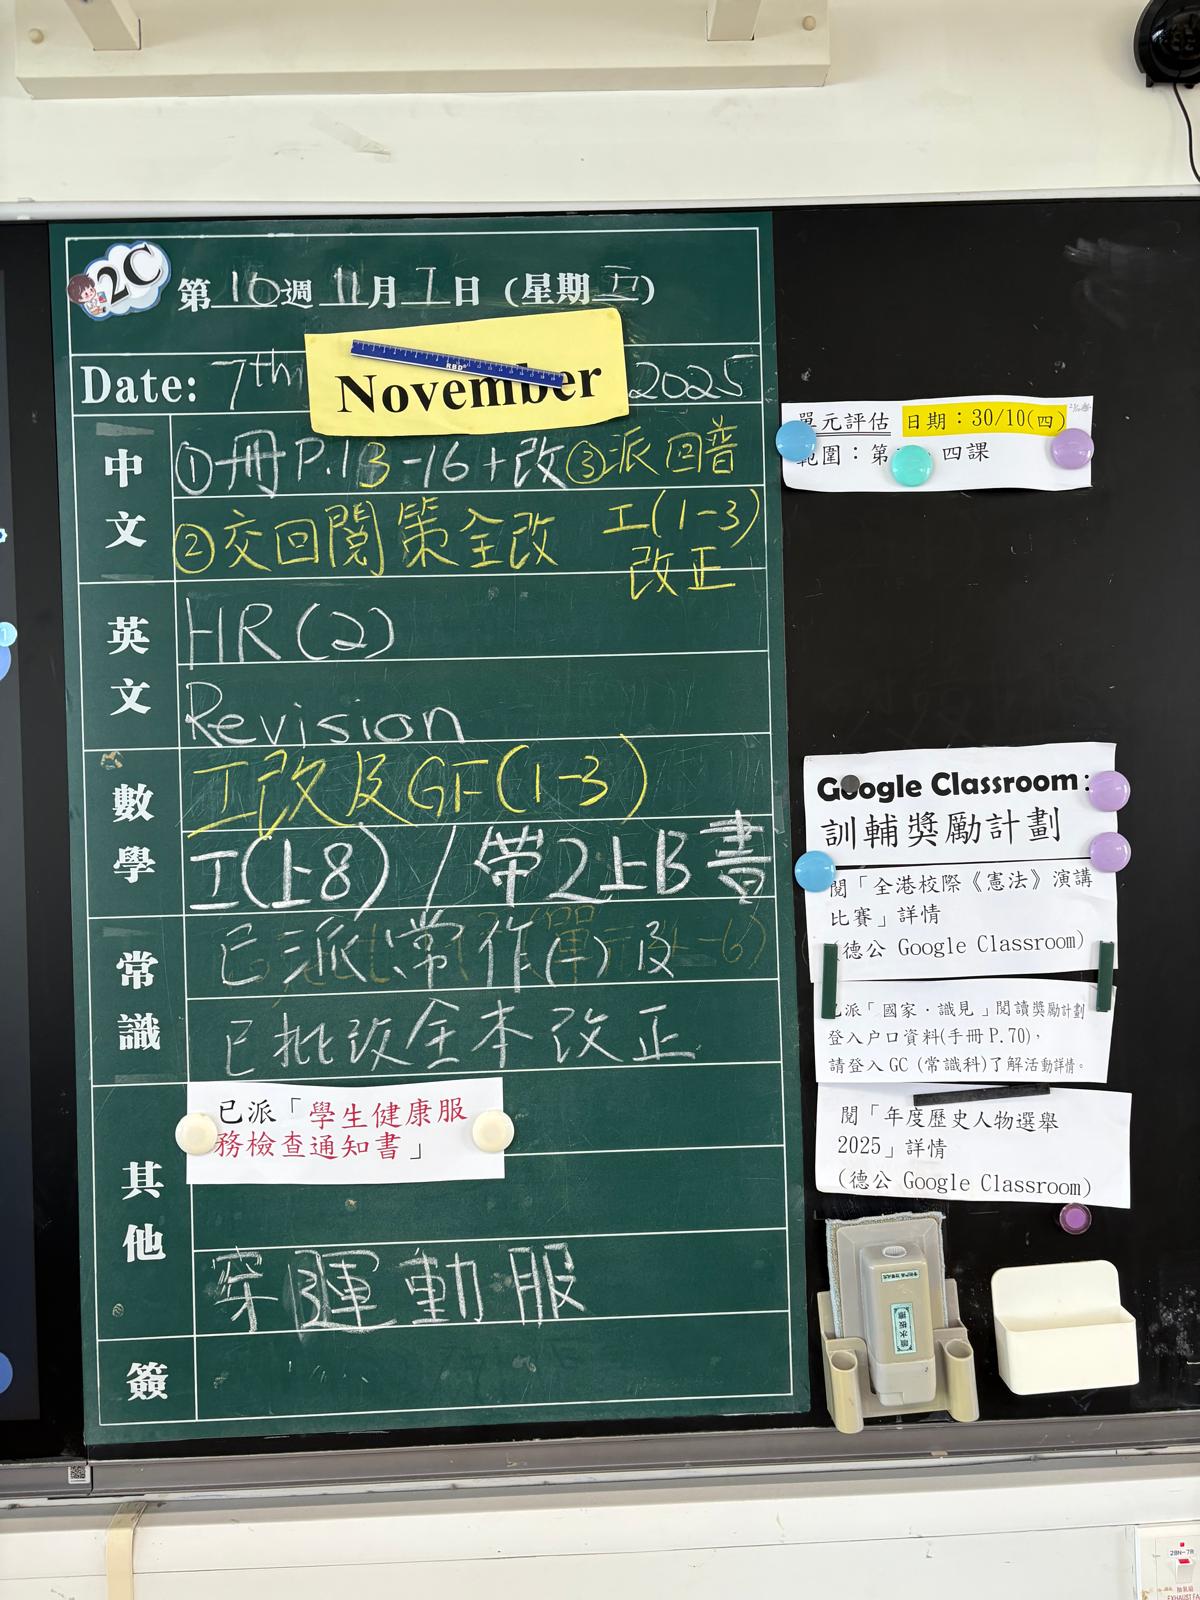 2C
第10週 11月7日 (星期五)
Date: 7th November 2025
RBD
中文
①冊P.13-16+改 ③派回普
②交回閱策全改 工(1-3)
改正
英文
HR(2)
Revision
數學
工改及GF(1-3)
工(1-8) / 帶2上B書
常識
已派常作(一)及
已批改全本改正
其他
已派「學生健康服
務檢查通知書」
穿運動服
簽
單元評估 日期：30/10(四)
範圍：第 四課
Google Classroom:
訓輔獎勵計劃
閱「全港校際《憲法》演講
比賽」詳情
(德公 Google Classroom)
已派「國家．識見」閱讀獎勵計劃
登入户口資料(手冊 P.70)，
請登入 GC (常識科)了解活動詳情。
閱「年度歷史人物選舉
2025」詳情
(德公 Google Classroom)